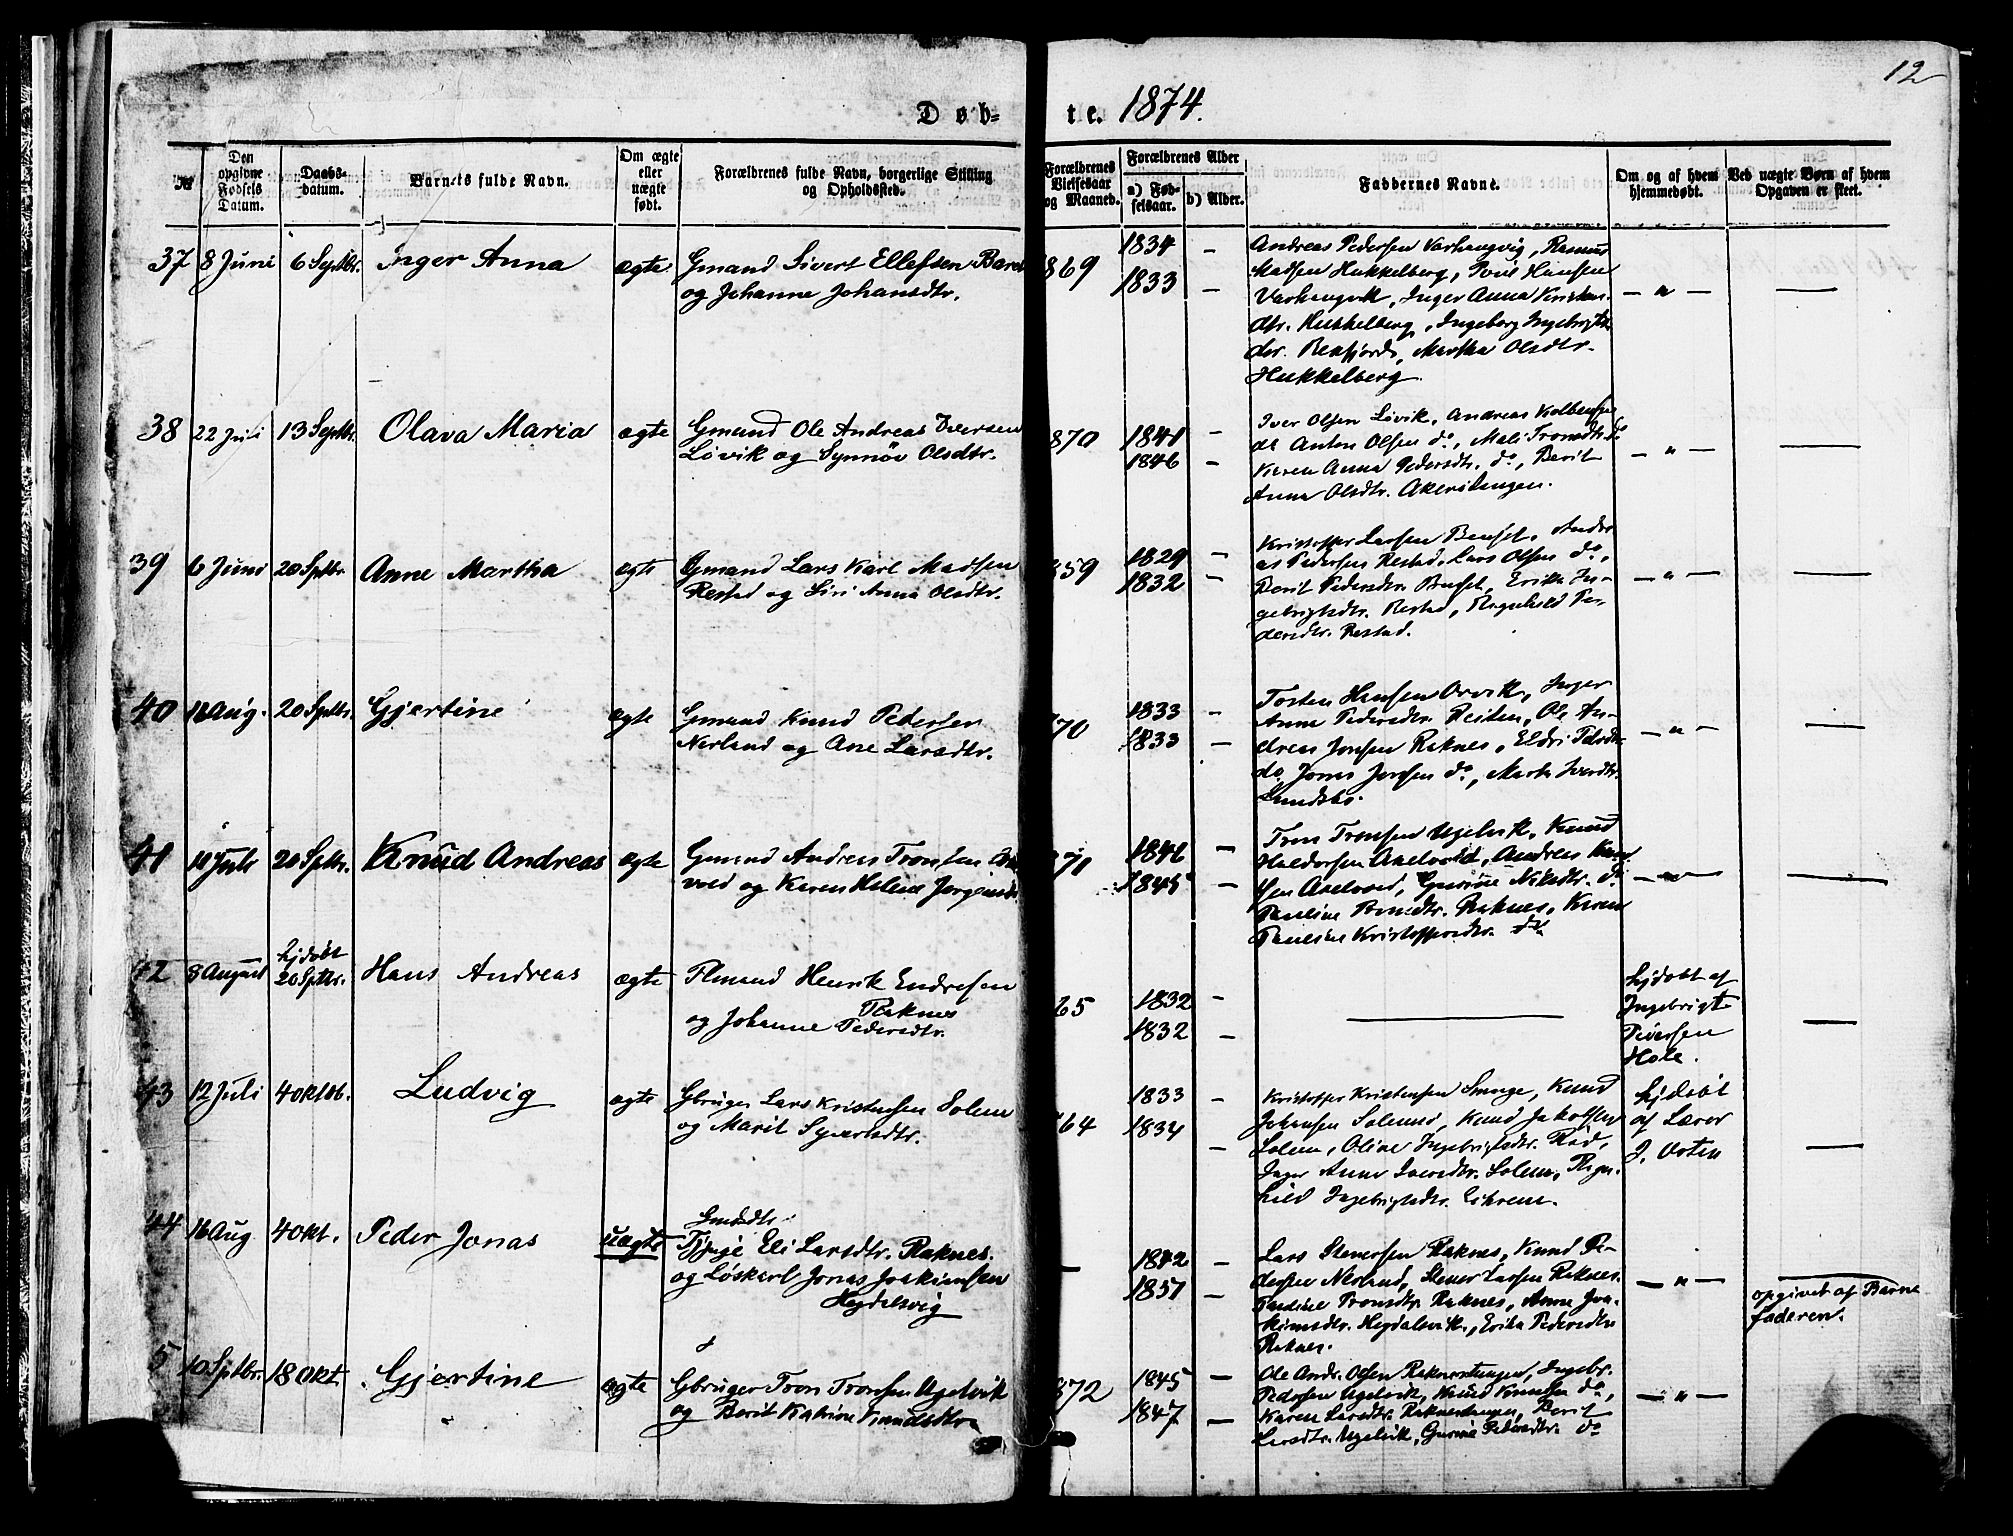 12
Døb- te. 1874.
№
Den opgivne Fødsels Datum.
Daabs-datum.
Barnets fulde Navn.
Om ægte eller uægte født.
Forældrenes fulde Navn, borgerlige Stilling og Opholdssted.
Forældrenes Vielsesaar og Maaned.
Forældrenes Alder
a) Fød-selsaar.
b) Alder.
Faddernes Navne.
Om og af hvem hjemmedøbt.
Ved uægte Børn af hvem Opgaven er skeet.
37 8 Juni 6 Septbr. Inger Anna ægte
Gmand Sivert Ellefsen
og Johanne Johansdtr.
869 1834 –
1833 –
Andreas Pedersen Varhaugvig, Rasmus
Madsen Hukkelberg, Poul Hansen
Varhaugvik, Inger Anna Kristen-
dtr. Hukkelberg, Ingeborg Ingebrigts
dtr. Martha Olsdtr.
Hukkelberg.
— " —
38 22 Juli 13 Septbr. Olava Maria ægte
Gmand Ole Andreas Iversen
Løvik og Synnøv Olsdtr.
870 1841 –
1846 –
Iver Olsen Løvik, Andreas
do Anton Olsen do, Mali Tronsdtr. do
Karen Anna Pedersdtr. do, Berit
Anna Olsdtr.
— " —
39 6 Juni 20 Sptbr. Anne Martha ægte
Gmand Lars Karl Madsen
Restad og Siri Anna Olsdtr.
859 1829 –
1832 –
Kristoffer Larsen Andre-
as Pedersen Restad, Lars Olsen do,
Berit Pedersdtr. Erika In-
gebrigtsdtr. Restad, Ragnhild Pe-
dersdtr. Restad.
— " —
40 Aug. 20 Sptbr. Gjertine ægte
Gmand Knud Pedersen
Nerland og Ane Larsdtr.
70 1833 –
1833 –
Torsten Hansen Orvik, Inger
Anna Pedersdtr. Reiten, Ole An-
dreas Jonsen Raknes, Eldri
do, Jonas Jonsen do, Marta Iversdtr.
— " —
41 Juli 20 Sptbr. Knud Andreas ægte
Gmand Andreas Tronsen
vold og Karen Helene
71 1846 –
1845 –
Tron Tronsen Ugelvik, Knud
Haldorsen Axelvold, Andreas
sen Axelvold, Gurine Nilsdtr. do
Pauline Raknes, Karen
Pauline Kristoffersdtr. do
— " —
42 8 August hjdøbt
20 Sptbr. Hans Andreas ægte
Flmand Henrik Endresen
Raknes
og Johanne Pedersdtr.
65 1832 –
1832 –
hjdøbt af
Ingebrigt
Iversen
Hole.
43 12 Juli 4 Oktob. Ludvig ægte
Gbruger Lars Kristensen Solem
og Marit Syvertsdtr.
64 1833 –
1834 –
Kristoffer Kristensen Knud
Johansen Knud Jakobsen
Solem, Oline Ingebrigtsdtr.
Inger Anne Iversdtr. Solem, Ragn-
hild Ingebrigtsdtr.
hjdøbt
af Lærer
J. Vorten
44 16 Aug 4 Okt. Peder Jonas uægte
Gmdtr.
Pige Eli Larsdtr. Raknes.
og Løskarl Jonas Joakimsen
Hegdalsvig
— 1842 –
1851 –
Lars Stenersen Raknes, Knud Pe-
dersen Nerland, Stener Larsen Raknes.
Pauline Tronsdtr. Raknes, Anne Joa-
kimsdtr. Hegdalsvik, Erika Pedersdtr.
Raknes.
— " —
opgivet af Barne
faderen.
5 10 Sptbr. 18 Okt. Gjertine ægte
Gbruger Tron Tronsen Ugelvik
og Berit Katrine Knudsdtr.
872 1845 –
1847 –
Ole Andr. Olsen Raknestangen, Ingebr.
Pedersen Ugelvik, Knud Knudsen do,
Karen Larsdtr. Raknestangen, Berit
Larsdtr. Ugelvik, Gurine Pedersdtr. do
— " —